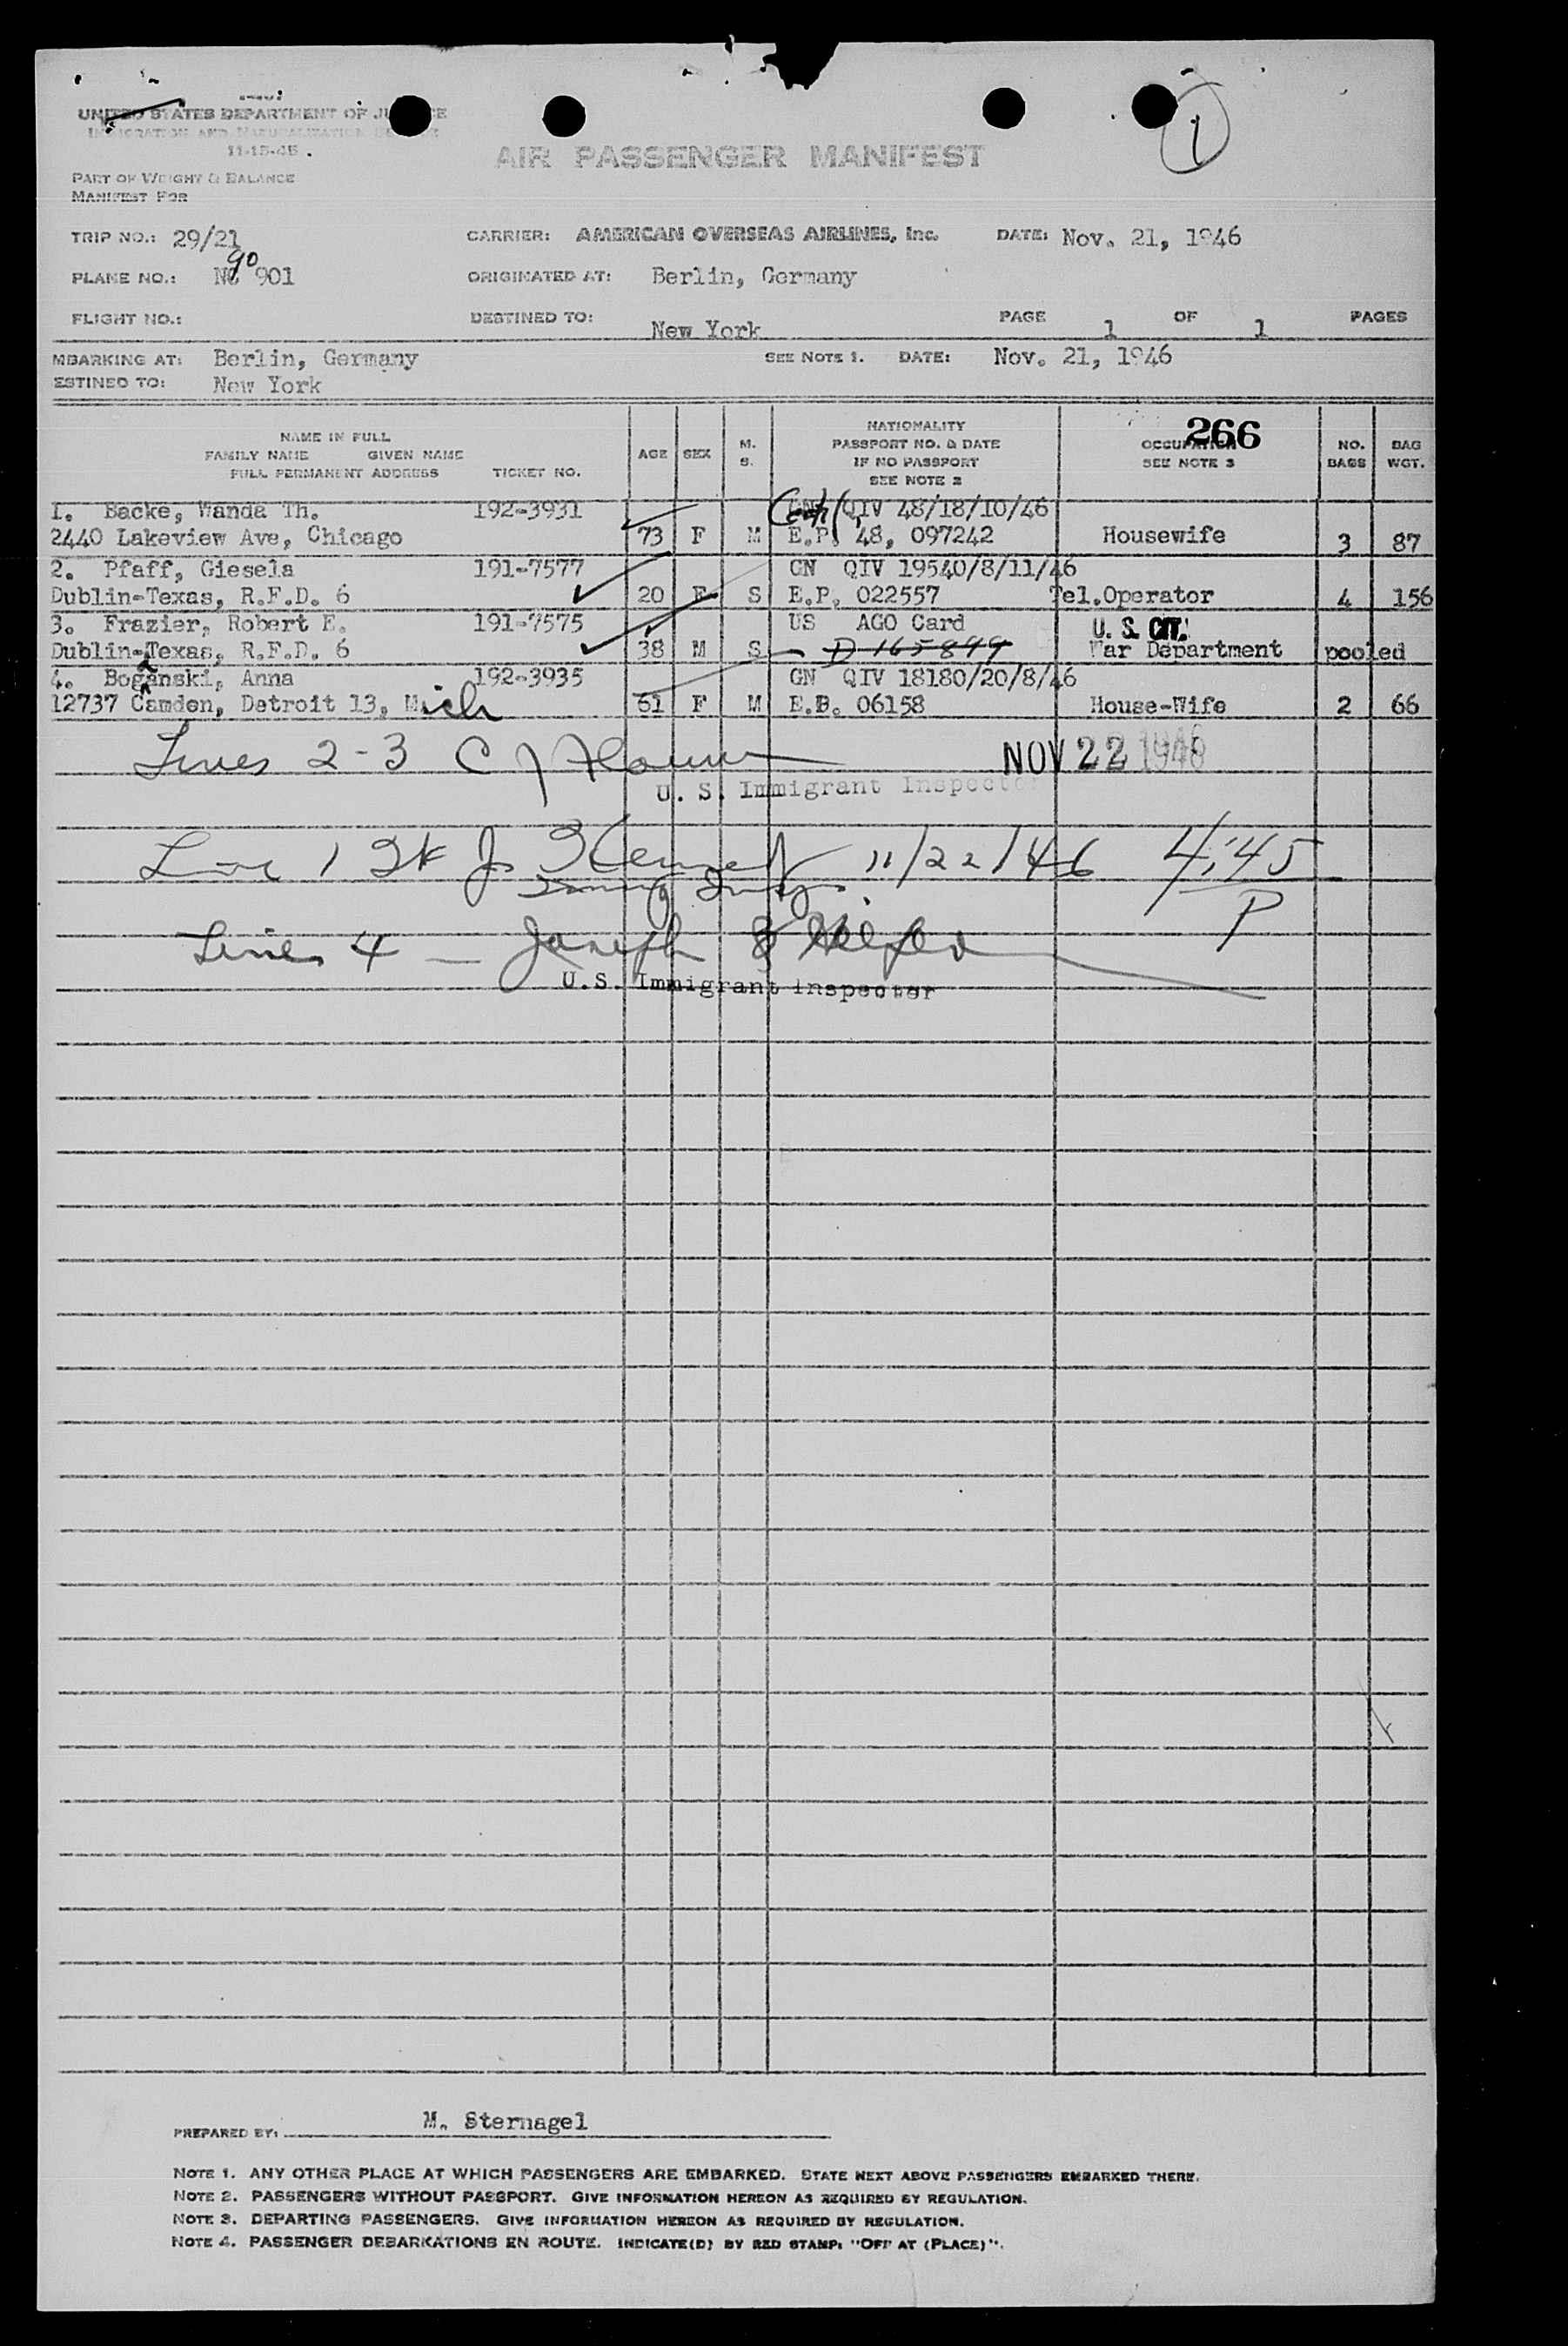 UNITED STATES DEPARTMENT OF JUSTICE
IMMIGRATION AND NATURALIZATION SERVICE
11-15-45
AIR PASSENGER MANIFEST
1
PART OF WEIGHT & BALANCE
MANIFEST FOR
TRIP NO.: 29/21 CARRIER: AMERICAN OVERSEAS AIRLINES, Inc. DATE: Nov. 21, 1946
90
PLANE NO.: NC 901 ORIGINATED AT: Berlin, Germany
FLIGHT NO.: DESTINED TO: New York PAGE 1 OF 1 PAGES
MBARKING AT: Berlin, Germany SEE NOTE 1. DATE: Nov. 21, 1946
ESTINED TO: New York
266
NAME IN FULL
FAMILY NAME GIVEN NAME
FULL PERMANENT ADDRESS TICKET NO.
AGE SEX M. S.
NATIONALITY
PASSPORT NO. & DATE
IF NO PASSPORT
SEE NOTE 2
OCCUPATION
SEE NOTE 3
NO. BAGS
BAG WGT.
1. Backe, Wanda Th. 192-3931 QIV 48/18/10/46
2440 Lakeview Ave, Chicago 73 F M E.P. 48, 097242 Housewife 3 87
2. Pfaff, Giesela 191-7577 GN QIV 19540/8/11/46
Dublin-Texas, R.F.D. 6 20 F S E.P. 022557 Tel.Operator 4 156
3. Frazier, Robert E. 191-7575 US AGO Card U. S. CIT.
Dublin-Texas, R.F.D. 6 38 M S D 165899 War Department pooled
4. Boganski, Anna 192-3935 GN QIV 18180/20/8/46
12737 Camden, Detroit 13, Mich 61 F M E.P. 06158 House-Wife 2 66
Lines 2-3 C J
NOV 22 1946
U. S. Immigrant Inspector
Line 1 11/22/46 4:45
P
Lines 4 — Joseph
U.S. Immigrant Inspector
PREPARED BY: M. Sternagel
NOTE 1. ANY OTHER PLACE AT WHICH PASSENGERS ARE EMBARKED. STATE NEXT ABOVE PASSENGERS EMBARKED THERE.
NOTE 2. PASSENGERS WITHOUT PASSPORT. GIVE INFORMATION HEREON AS REQUIRED BY REGULATION.
NOTE 3. DEPARTING PASSENGERS. GIVE INFORMATION HEREON AS REQUIRED BY REGULATION.
NOTE 4. PASSENGER DEBARKATIONS EN ROUTE. INDICATE(D) BY RED STAMP: "OFF AT (PLACE)".